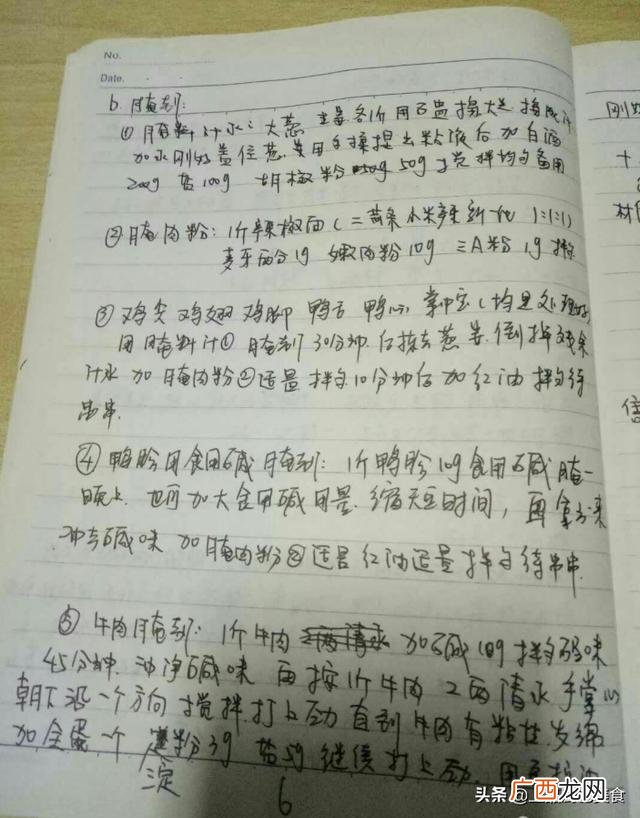 No.
Date.
b. 腌制:
① 腌料汁水: 大葱 生姜各1斤 用 捣大志 捣成汁
加水刚好盖住葱姜用手揉捏出粘液后加白酒
200g 盐100g 胡椒粉 50g 搅拌均匀备用
②腌肉粉: 1斤辣椒面 (二荆条 小米辣 新一代 1:1:1)
麦芽酚1g 嫩肉粉10g 三A粉1g 拌匀
③ 鸡尖 鸡翅 鸡脚 鸭舌 鸭心 掌中宝 (均是处理好
用腌料汁① 腌制30分钟. 后拣去葱姜. 倒掉残余
汁水 加腌肉粉②适量 拌匀10分钟后 加红油 拌匀待
串串.
④ 鸭胗用食用碱腌制: 1斤鸭胗10g食用碱腌一
晚上. 也可加大食用碱用量. 缩短时间, 再拿出来
冲去碱味 加腌肉粉②适量 红油适量 拌匀待串串.
⑤ 牛肉腌制: 1斤牛肉 加碱10g 拌匀码味
45分钟. 冲净碱味 再按1斤牛肉 2两清水 手掌心
朝下沿一个方向搅拌打上劲直到牛肉有粘性发绵
加全蛋一个 淀粉3g 盐5g 继续打上劲. 用
淀
6
刚好
十
材
信
头条
美食
广西龙网